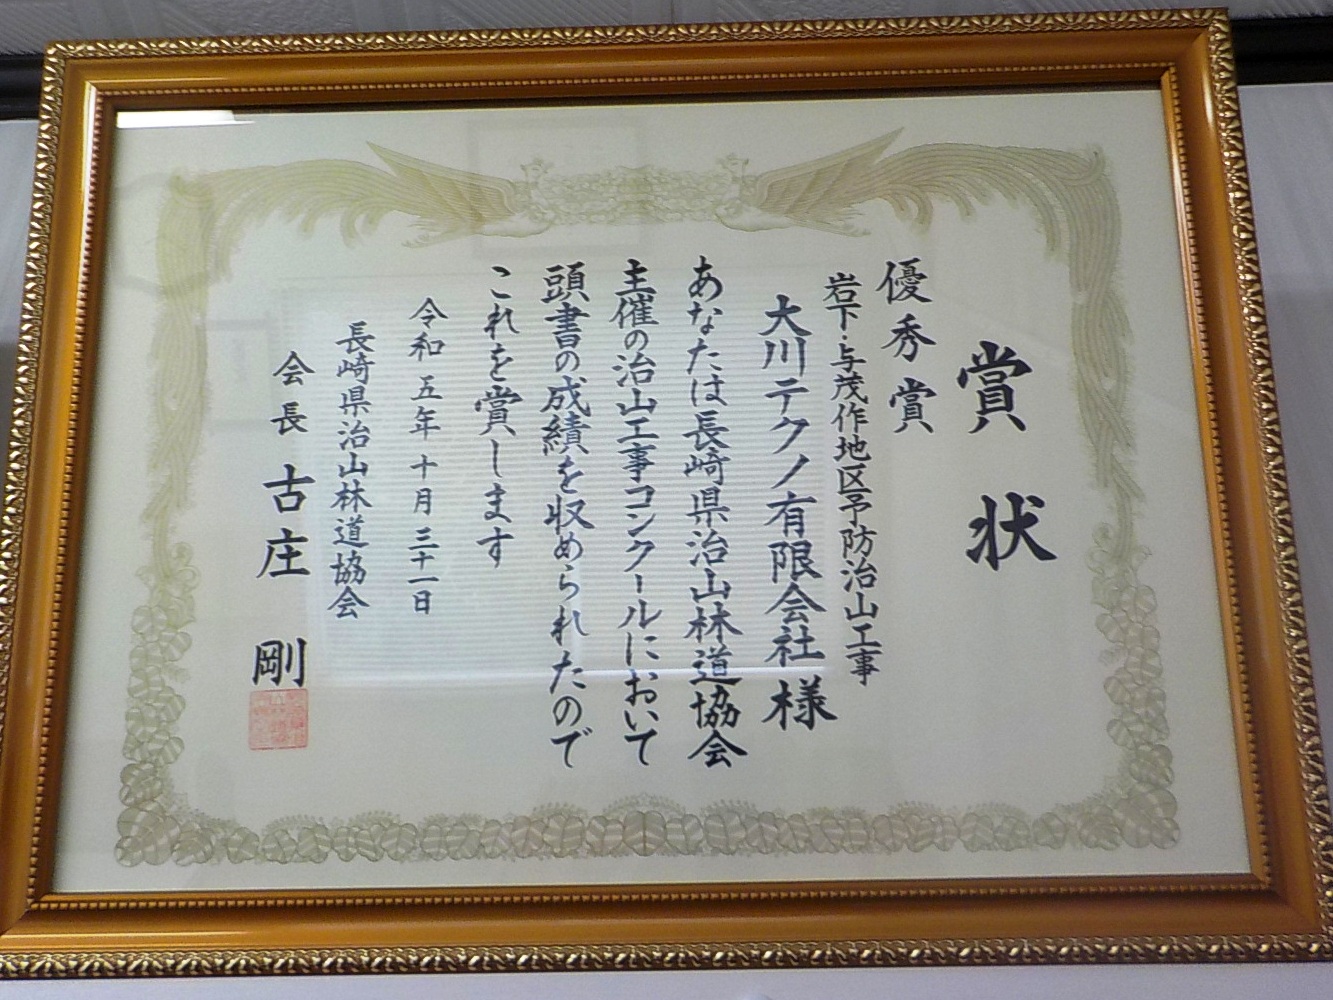 賞状
優秀賞
岩下・与茂作地区予防治山工事
大川テクノ有限会社 様
あなたは長崎県治山林道協会
主催の治山工事コンクールにおいて
頭書の成績を収められたので
これを賞します
令和五年十月三十一日
長崎県治山林道協会
会長 古庄 剛